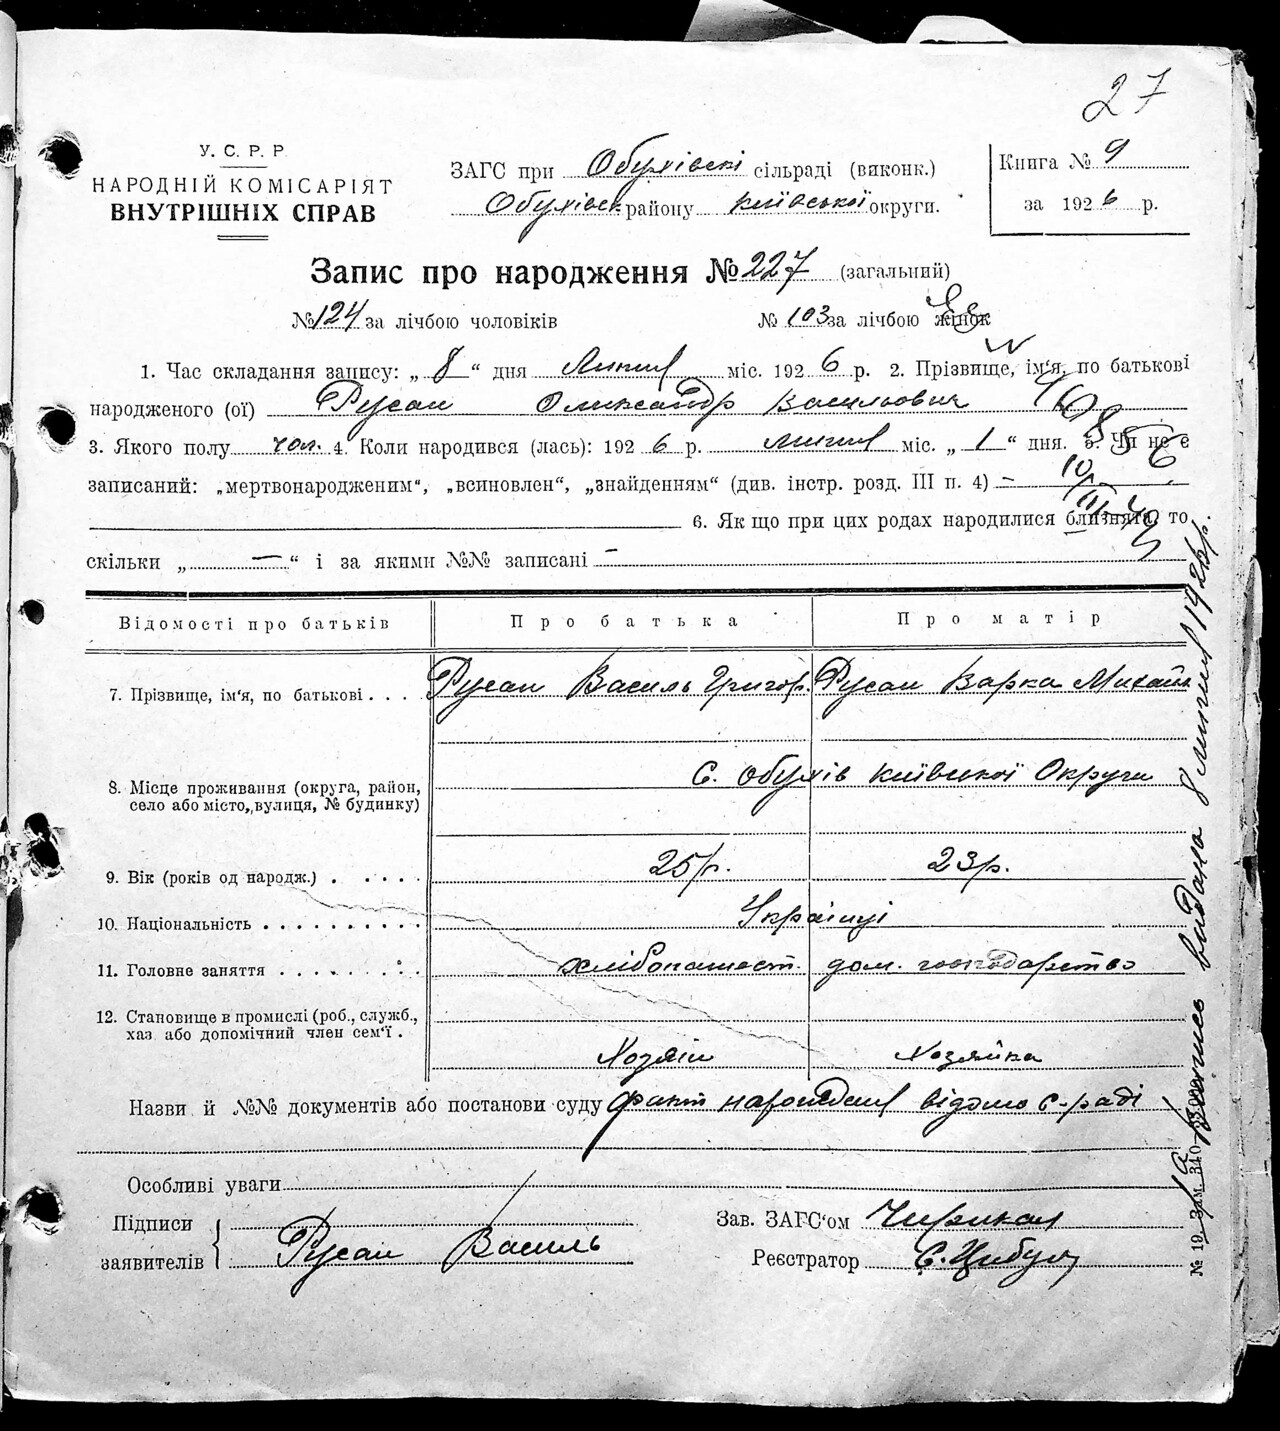 27
У. С. Р. Р.
НАРОДНІЙ КОМІСАРІЯТ
ВНУТРІШНІХ СПРАВ
ЗАГС при Обухівскі сільраді (виконк.)
Обухівск району Київської округи.
Книга № 9
за 1926 р.
Запис про народження № 227 (загальний)
№ 124 за лічбою чоловіків № 103 за лічбою жінок
1. Час складання запису: „ 8 “ дня Липня міс. 1926 р. 2. Прізвище, ім‘я, по батькові
народженого (ої) Русан Олександр Васильович
3. Якого полу чол. 4. Коли народився (лась): 1926 р. липня міс. „ 1 “ дня. 5. Чи не є
записаний: „мертвонародженим“, „всиновлен“, „знайденням“ (див. інстр. розд. III п. 4) –
6. Як що при цих родах народилися близнята, то
скільки „ — “ і за якими №№ записані –
Відомості про батьків Про батька Про матір
7. Прізвище, ім‘я, по батькові . . . Русан Василь Григор. Русан Варка Михайл
8. Місце проживання (округа, район,
село або місто, вулиця, № будинку)
С. Обухів Київської Округи
9. Вік (років од народж.) . . . . . 25 р. 23 р.
10. Національність . . . . . . . . . . Українці
11. Головне заняття . . . . . . . . хлібопашест. дом. господарство
12. Становище в промислі (роб., служб.,
хаз. або допомічний член сем‘ї .
Хозяїн Хозяйка
Назви й №№ документів або постанови суду факт народження відомо с-раді
Особливі уваги
Підписи
заявителів
Русан Василь
Зав. ЗАГС‘ом
Реєстратор Є. Цибул
видана 8 липня 1926 р.